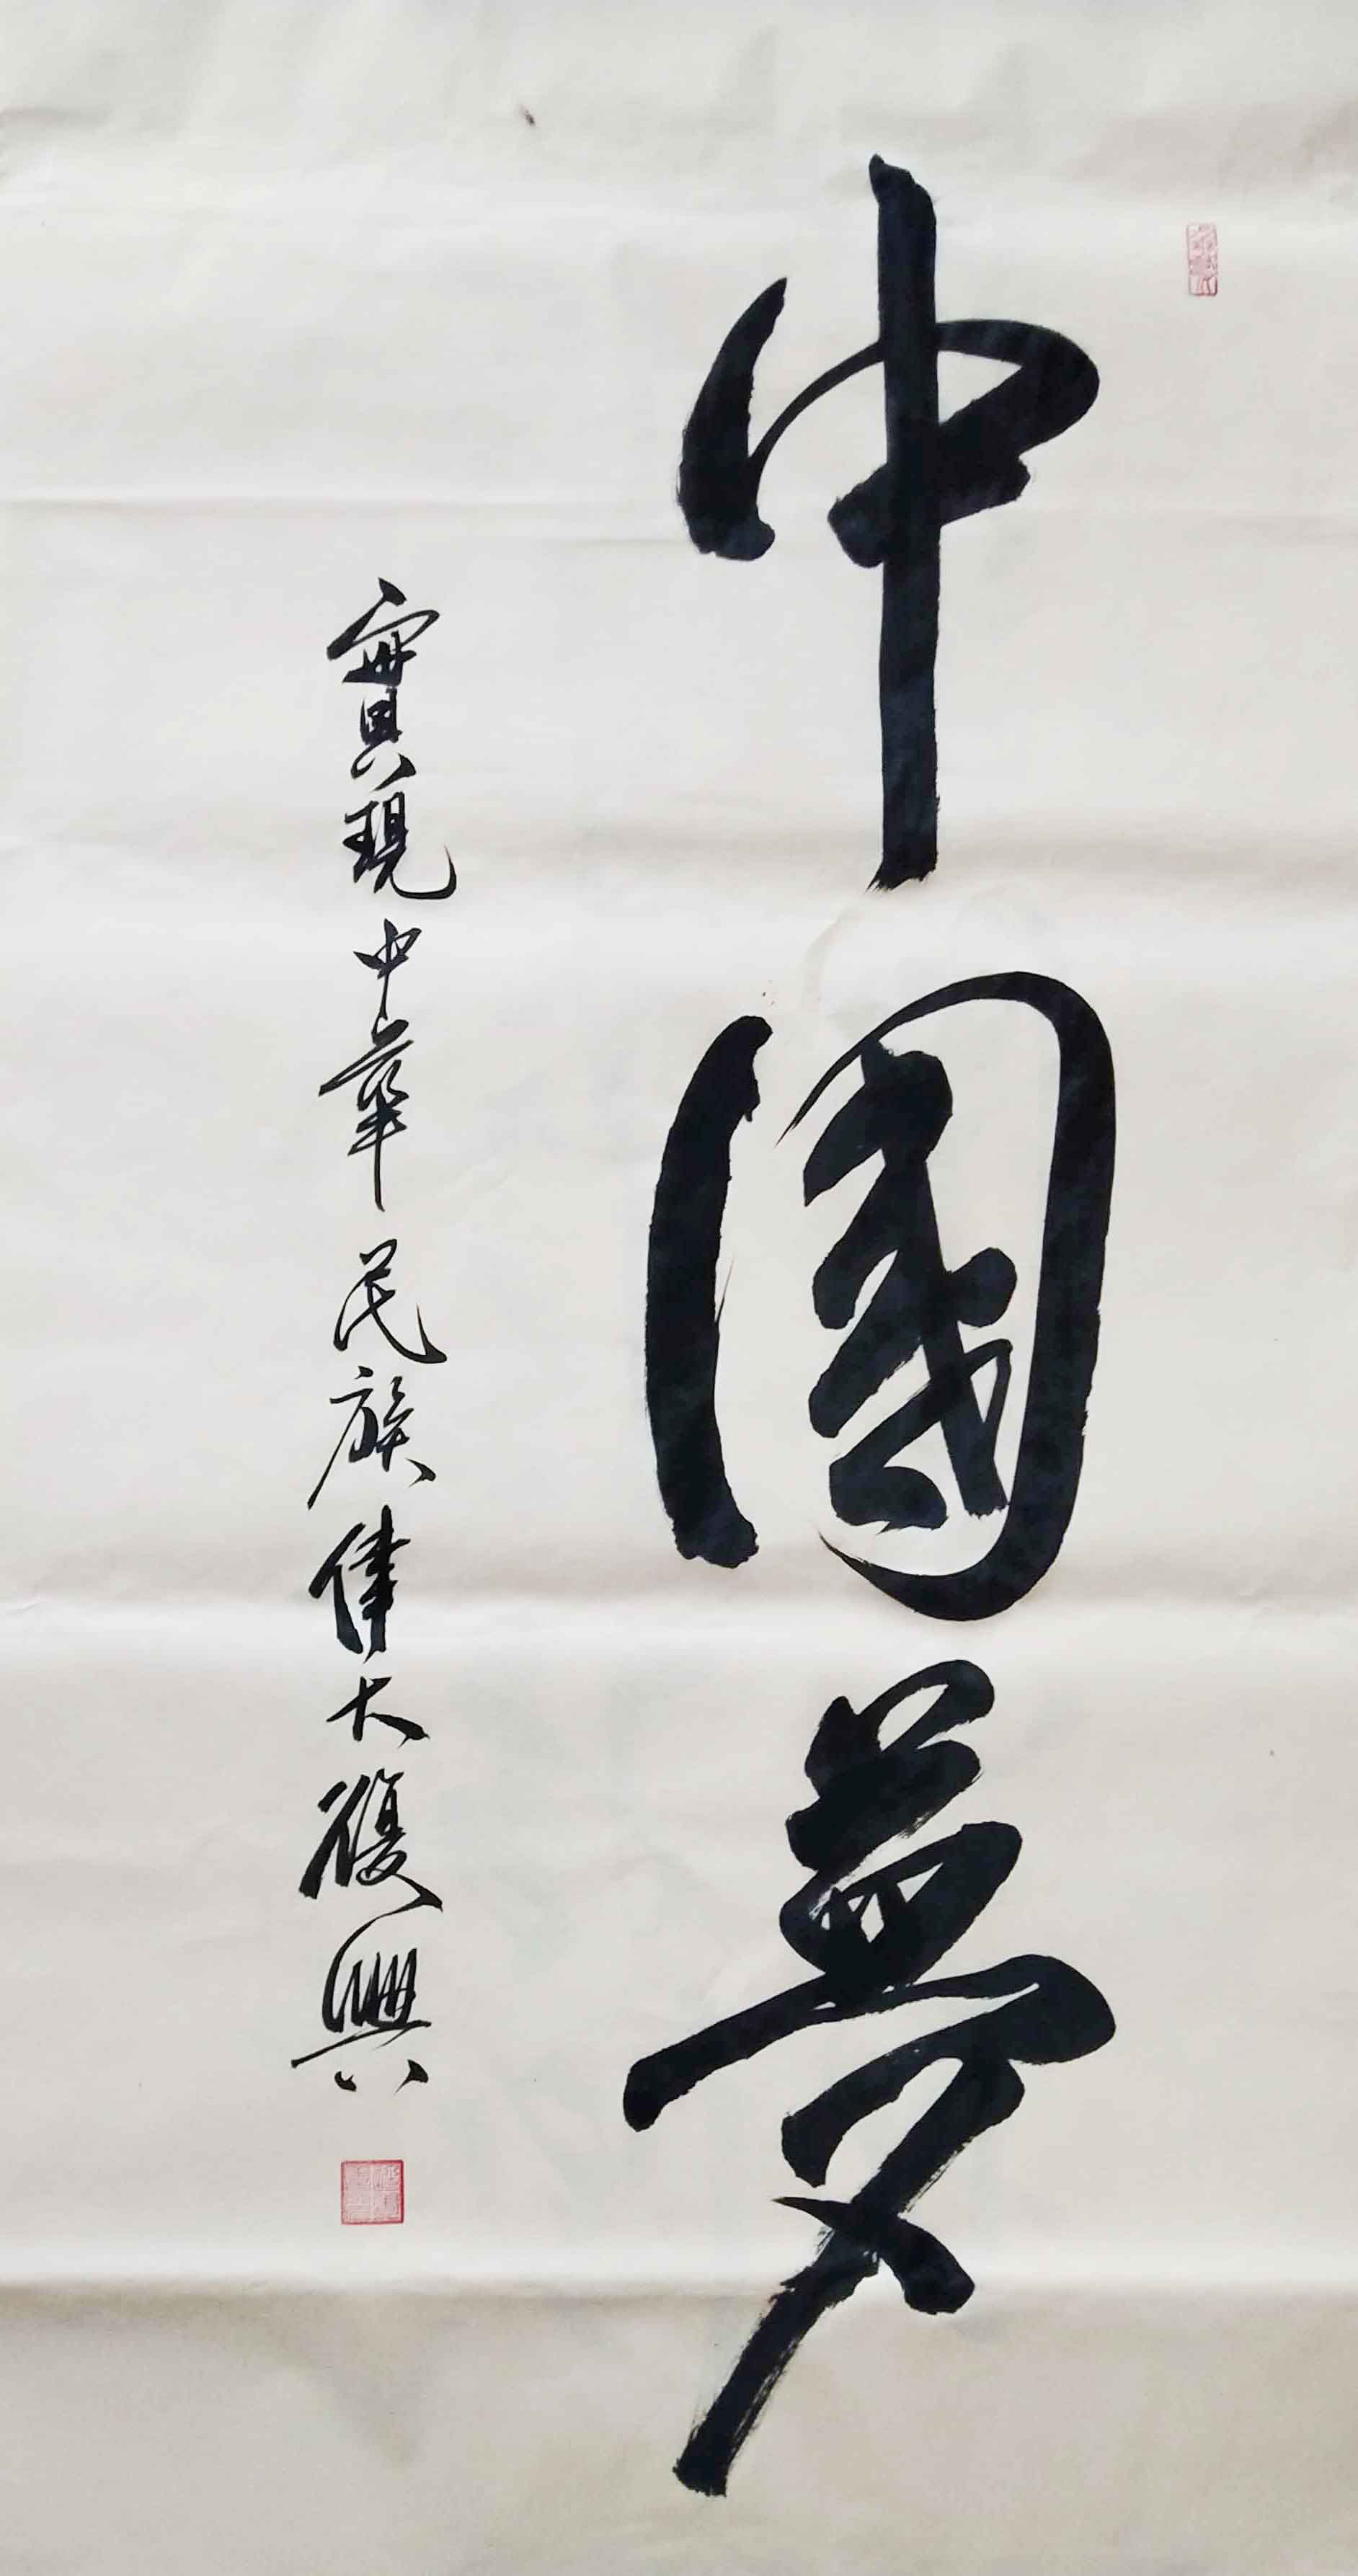 中國夢
實現中華民族偉大復興